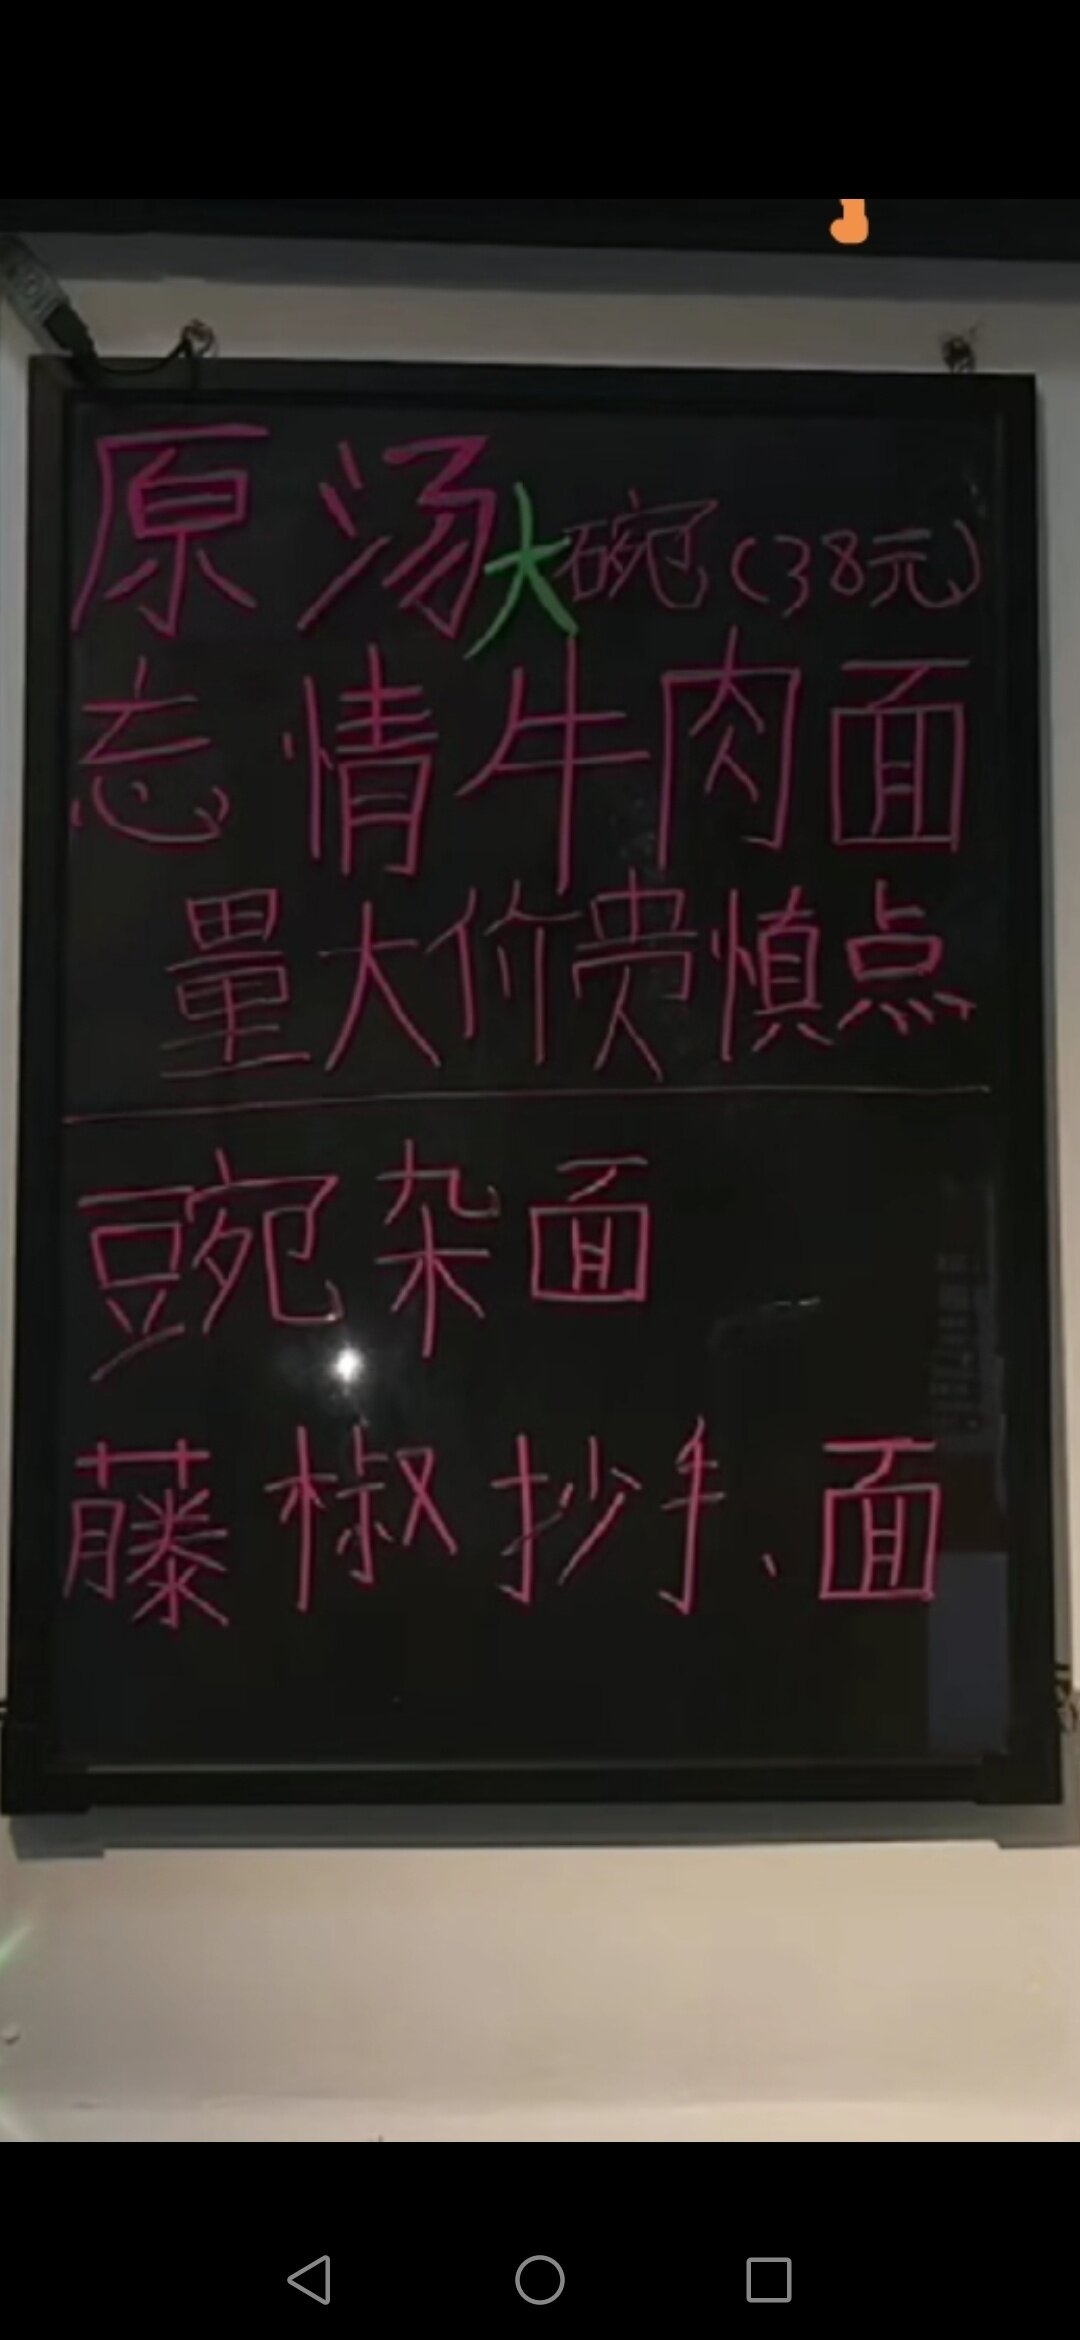 原汤大碗(38元)
忘情牛肉面
量大价贵慎点
豌杂面
藤椒抄手、面